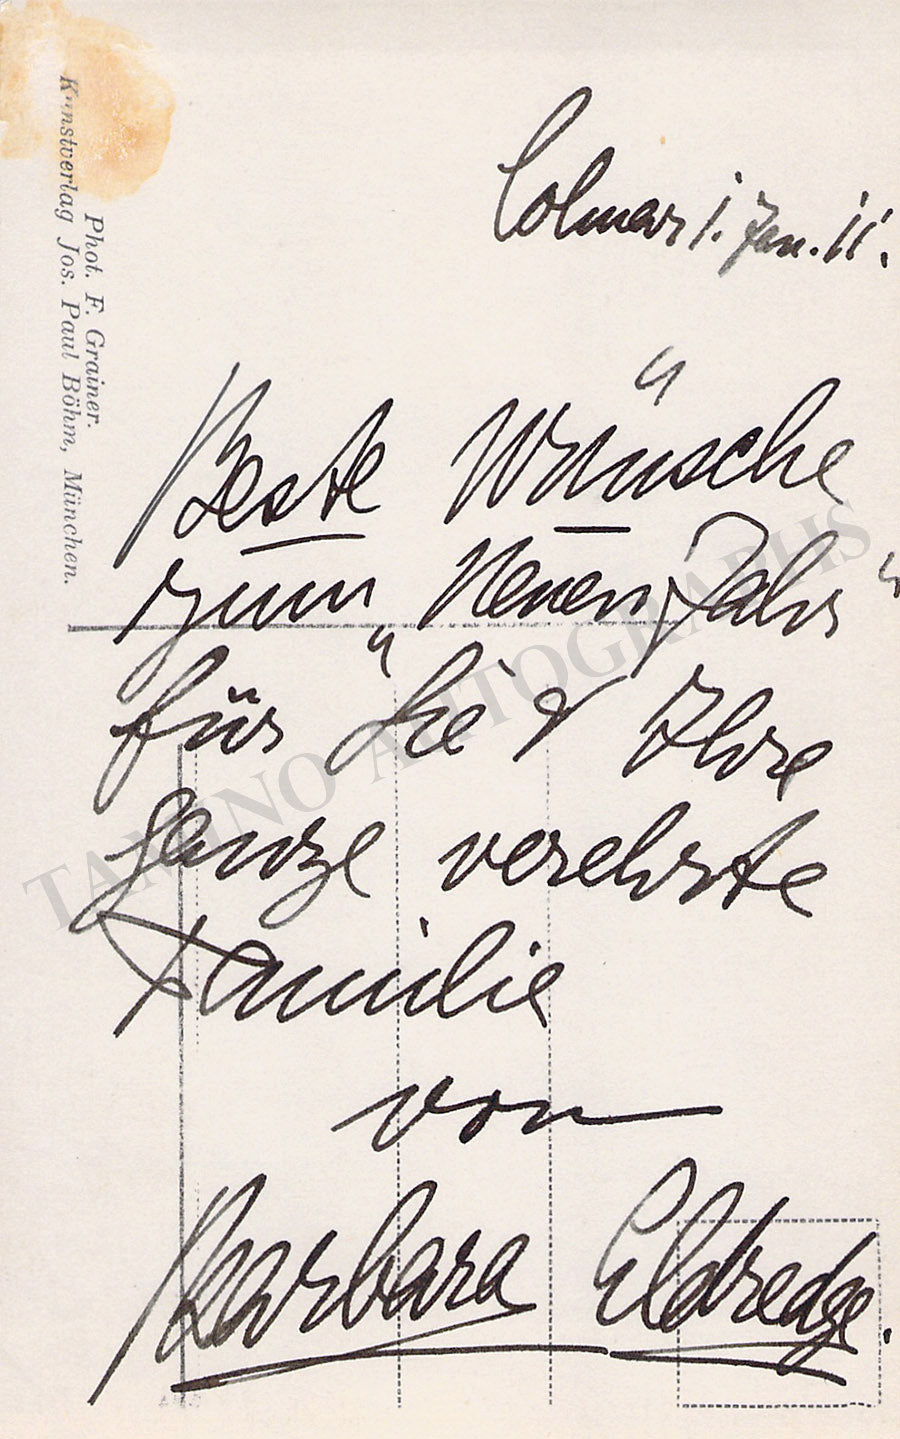 Colmar 1. Jan. 11.
Beste Wünsche
zum „Neuen Jahr“
für Sie & Ihre
ganze verehrte
Familie
von
Barbara Eldredge.
Phot. F. Grainer.
Kunstverlag Jos. Paul Böhm, München.
TAMINO AUTOGRAPHS